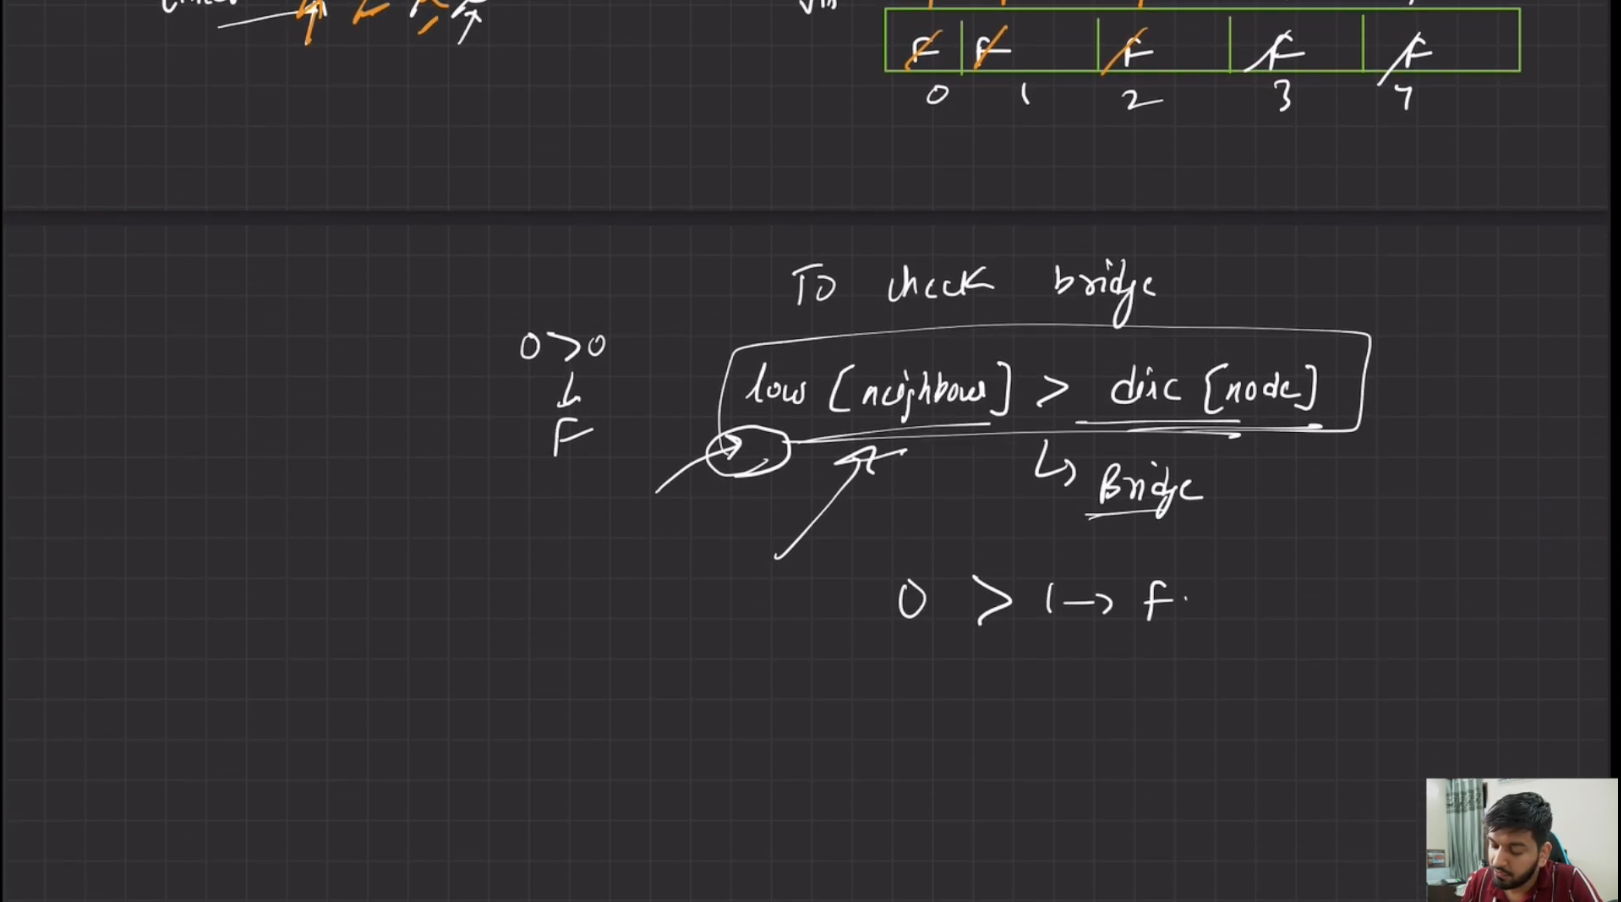 F F F F F
0 1 2 3 4
To check bridge
0 > 0
F
low [neighbour] > disc [node]
↳ Bridge
0 > 1 → F.